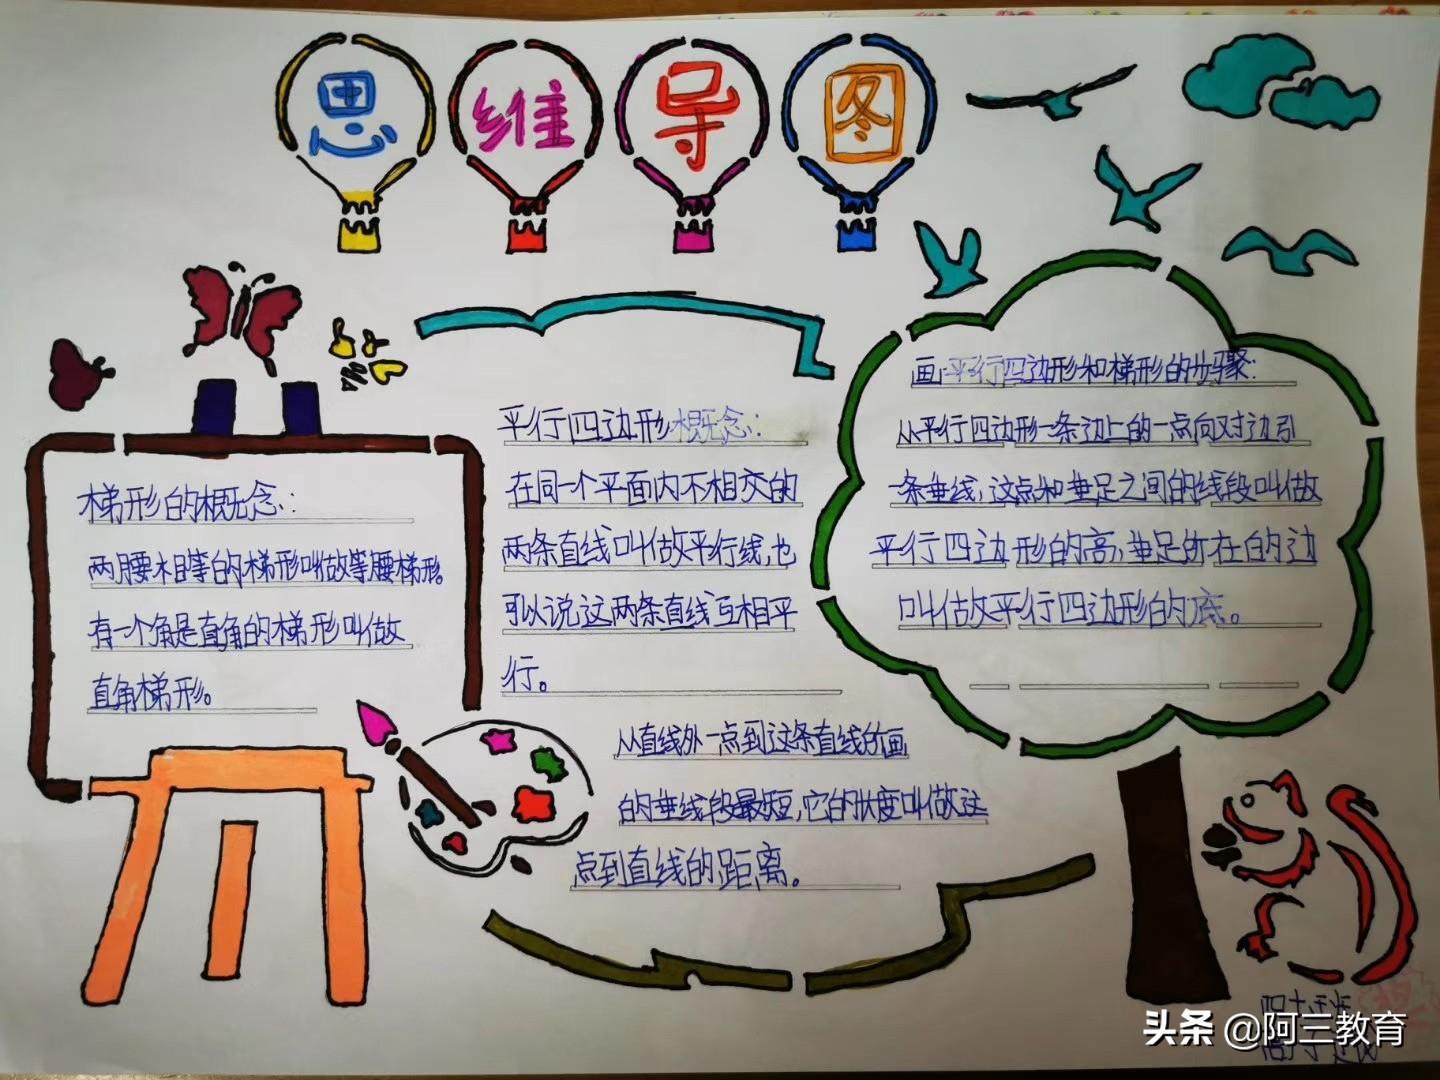 思维导图
梯形的概念:
两腰相等的梯形叫做等腰梯形。
有一个角是直角的梯形叫做
直角梯形。
平行四边形概念:
在同一个平面内不相交的
两条直线叫做平行线,也
可以说这两条直线互相平
行。
从直线外一点到这条直线所画
的垂线段最短,它的长度叫做这
点到直线的距离。
画平行四边形和梯形的步骤:
从平行四边形一条边上的一点向对边引
一条垂线,这点和垂足之间的线段叫做
平行四边形的高,垂足所在的边
叫做平行四边形的底。
头条 @阿三教育